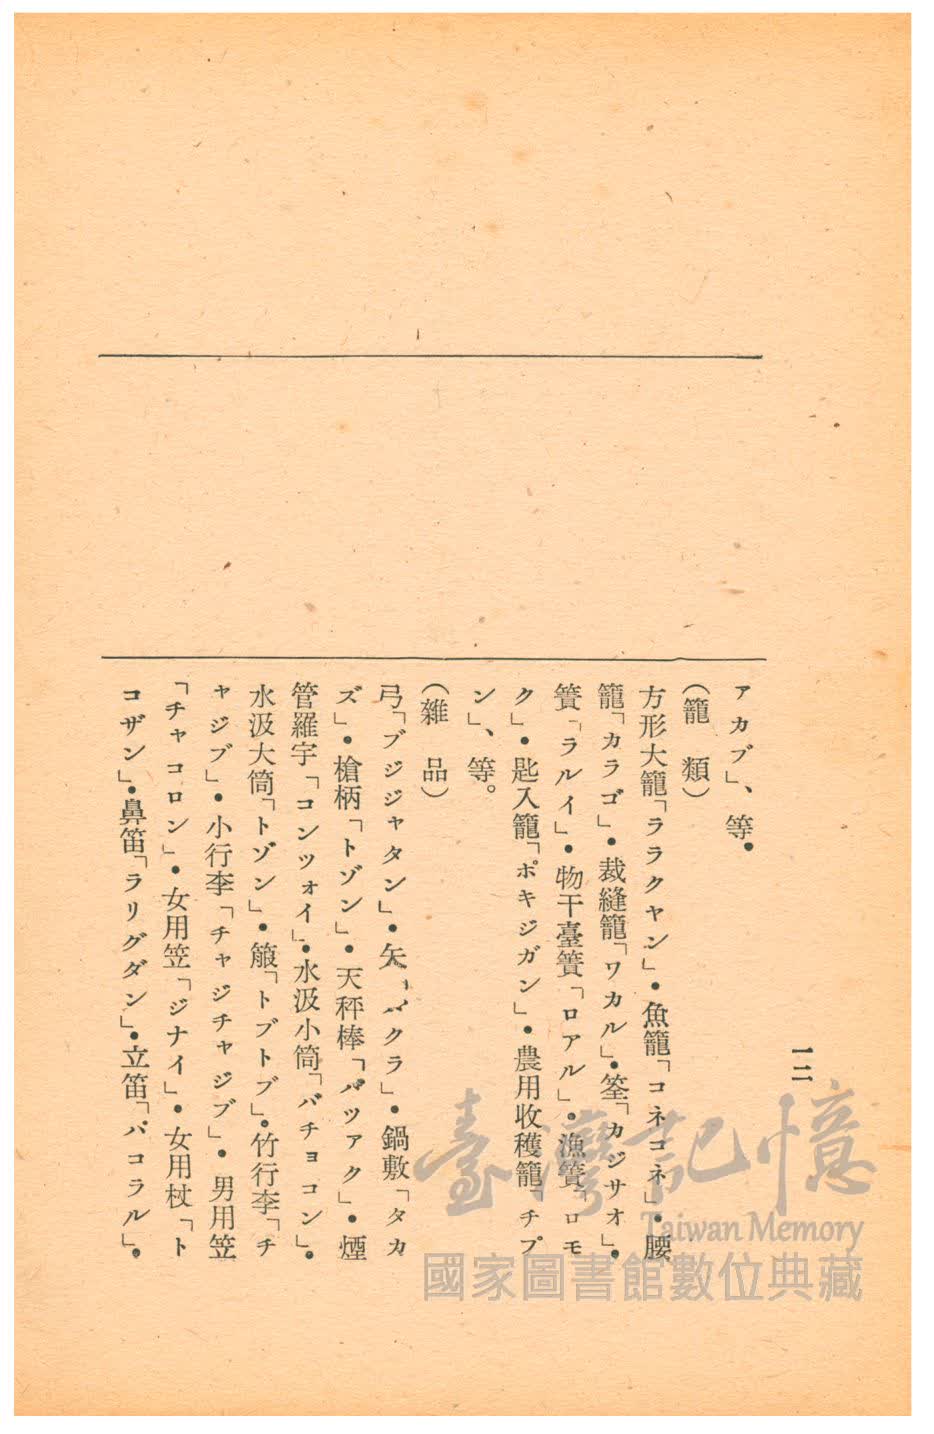 一二
ァカブ」、等•
（籠　類）
方形大籠「ララクヤン」・魚籠「コネコネ」・腰
籠「カラゴ」・裁縫籠「ワカル」・筌「カジサオ」・
簀「ラルイ」・物干臺簀「ロアル」・漁簀「ロモ
ク」・匙入籠「ポキジガン」・農用收穫籠「チプ
ン」、等。
（雜　品）
弓「ブジジャタン」・矢「パクラ」・鍋敷「タカ
ズ」・槍柄「トゾン」・天秤棒「パツァク」・煙
管羅宇「コンツォイ」・水汲小筒「バチョコン」・
水汲大筒「トゾン」・簸「トブトブ」・竹行李「チ
ャジブ」・小行李「チャジチャジブ」・男用笠
「チャコロン」・女用笠「ジナイ」・女用杖「ト
コザン」・鼻笛「ラリグダン」・立笛「パコラル」・
臺灣記憶
Taiwan Memory
國家圖書館數位典藏